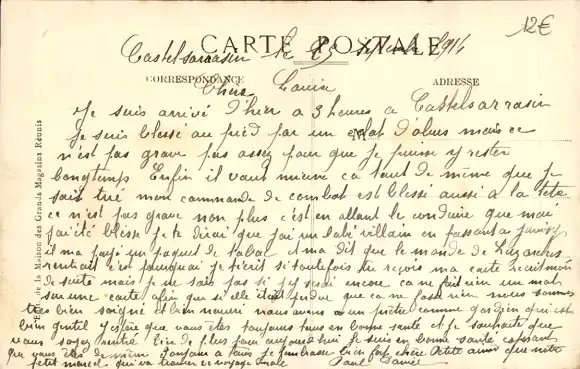 12€
CARTE POSTALE
Castelsarrasin le 1914
CORRESPONDANCE
ADRESSE
Chère Louise
Je suis arrivé d'hier a 3 heures a Castelsarrasin
Je suis blessé au pied par un eclat d'obus mais ce
n'est pas grave pas assez pour que je puisse y rester
longtemps Enfin il vaut mieux ca tout de même que je
soit tué mon commande de combat est blessé aussi a la tete
ce n'est pas grave non plus c'est en allant le conduire que moi
j'ai été blesse je te dirai que j'ai vu en passant a
il m'a payé un paquet de tabac m'a dit que le monde de
rentrait c'est pourquoi je t'ecrit si toutefois tu reçois ma carte recrit moi
de suite mais je ne sais pas si j'y serai encore ca ne fait rien un mot
sur une carte afin que si elle était perdue que ca ne fasse rien nous sommes
très bien soigné et bien nourri nous avons un prêtre comme gardien qui est
bien gentil J'espère que vous êtes toujours tous en bonne santé et je souhaite que
vous soyez rentré Rien de plus pour aujourd'hui je suis en bonne santé esperant
que vous êtes de même Toujours a toi je t'embrasse bien fort chère Petite ainsi que notre
petit marcel qui va trouver ce voyage drole Paul Daniel
Edit. de la Maison des Grands Magasins Réunis